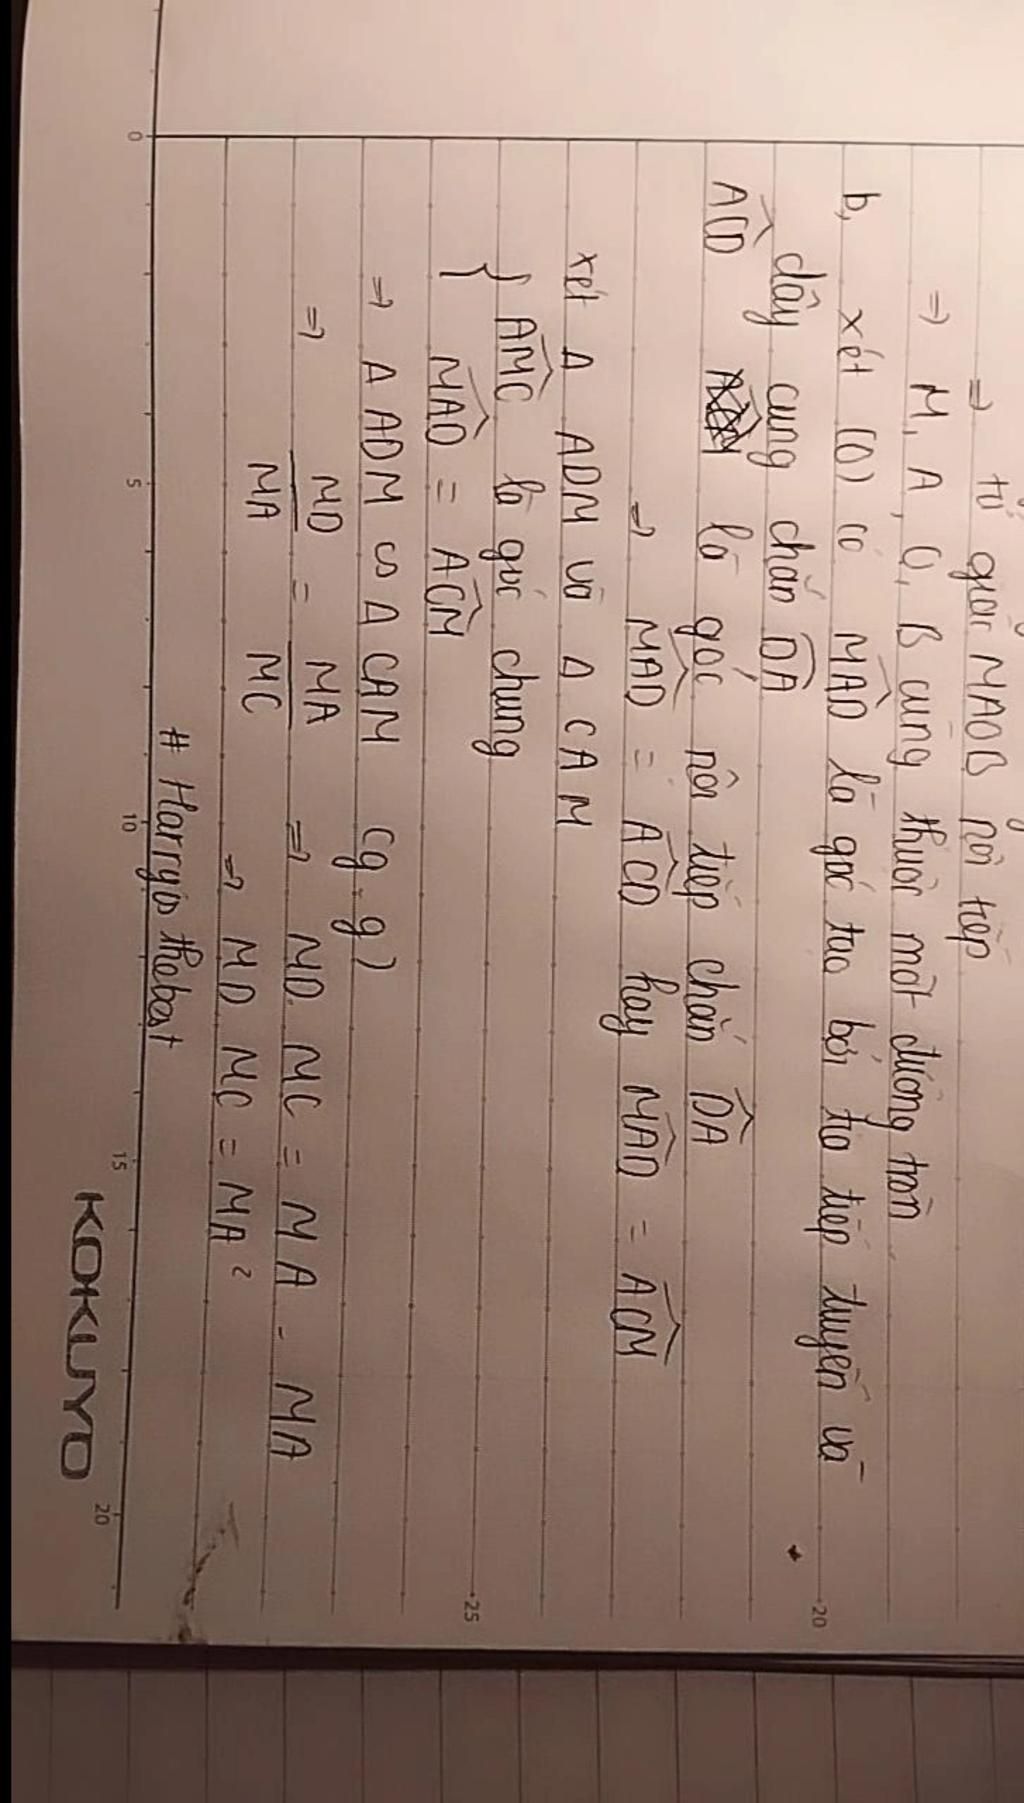 ⇒ tứ giác MAOB nội tiếp
⇒ M, A, O, B cùng thuộc một đường tròn
b, xét (O) có MAD là góc tạo bởi tia tiếp tuyến và
dây cung chắn DA
ACD là góc nội tiếp chắn DA
⇒ MAD = ACD hay MAD = ACM
xét Δ ADM và Δ CAM
} AMC là góc chung
MAD = ACM
⇒ Δ ADM ∽ Δ CAM (g.g)
⇒ MD/MA = MA/MC ⇒ MD. MC = MA . MA
⇒ MD. MC = MA²
# Harryis thebest
0 5 10 15 20
20
25
KOKUYO